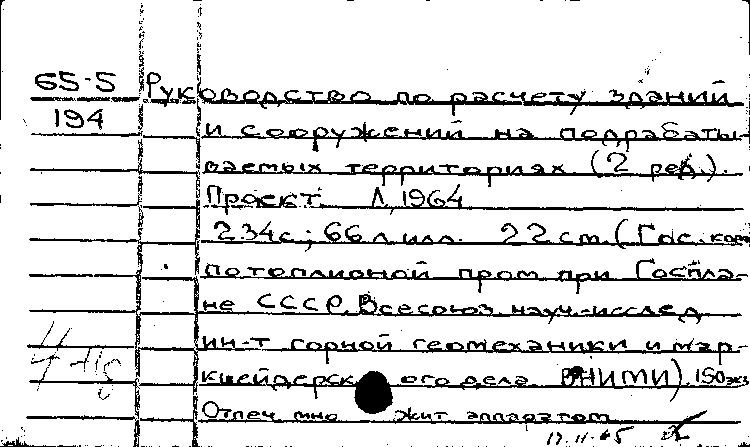 65-5 Руководство по расчету зданий
194 и сооружений на подрабаты-
ваемых территориях (2 ред.).
Проект. Л, 1964
234с; 66 л илл. 22 cm. (Гос. ком
по топливной пром при Госпла-
не СССР. Всесоюз. науч.-исслед
ин-т горной геомеханики и мар-
кшейдерск ого дела ВНИМИ). 150экз
Отпеч. мно жит аппаратом
17.11.65